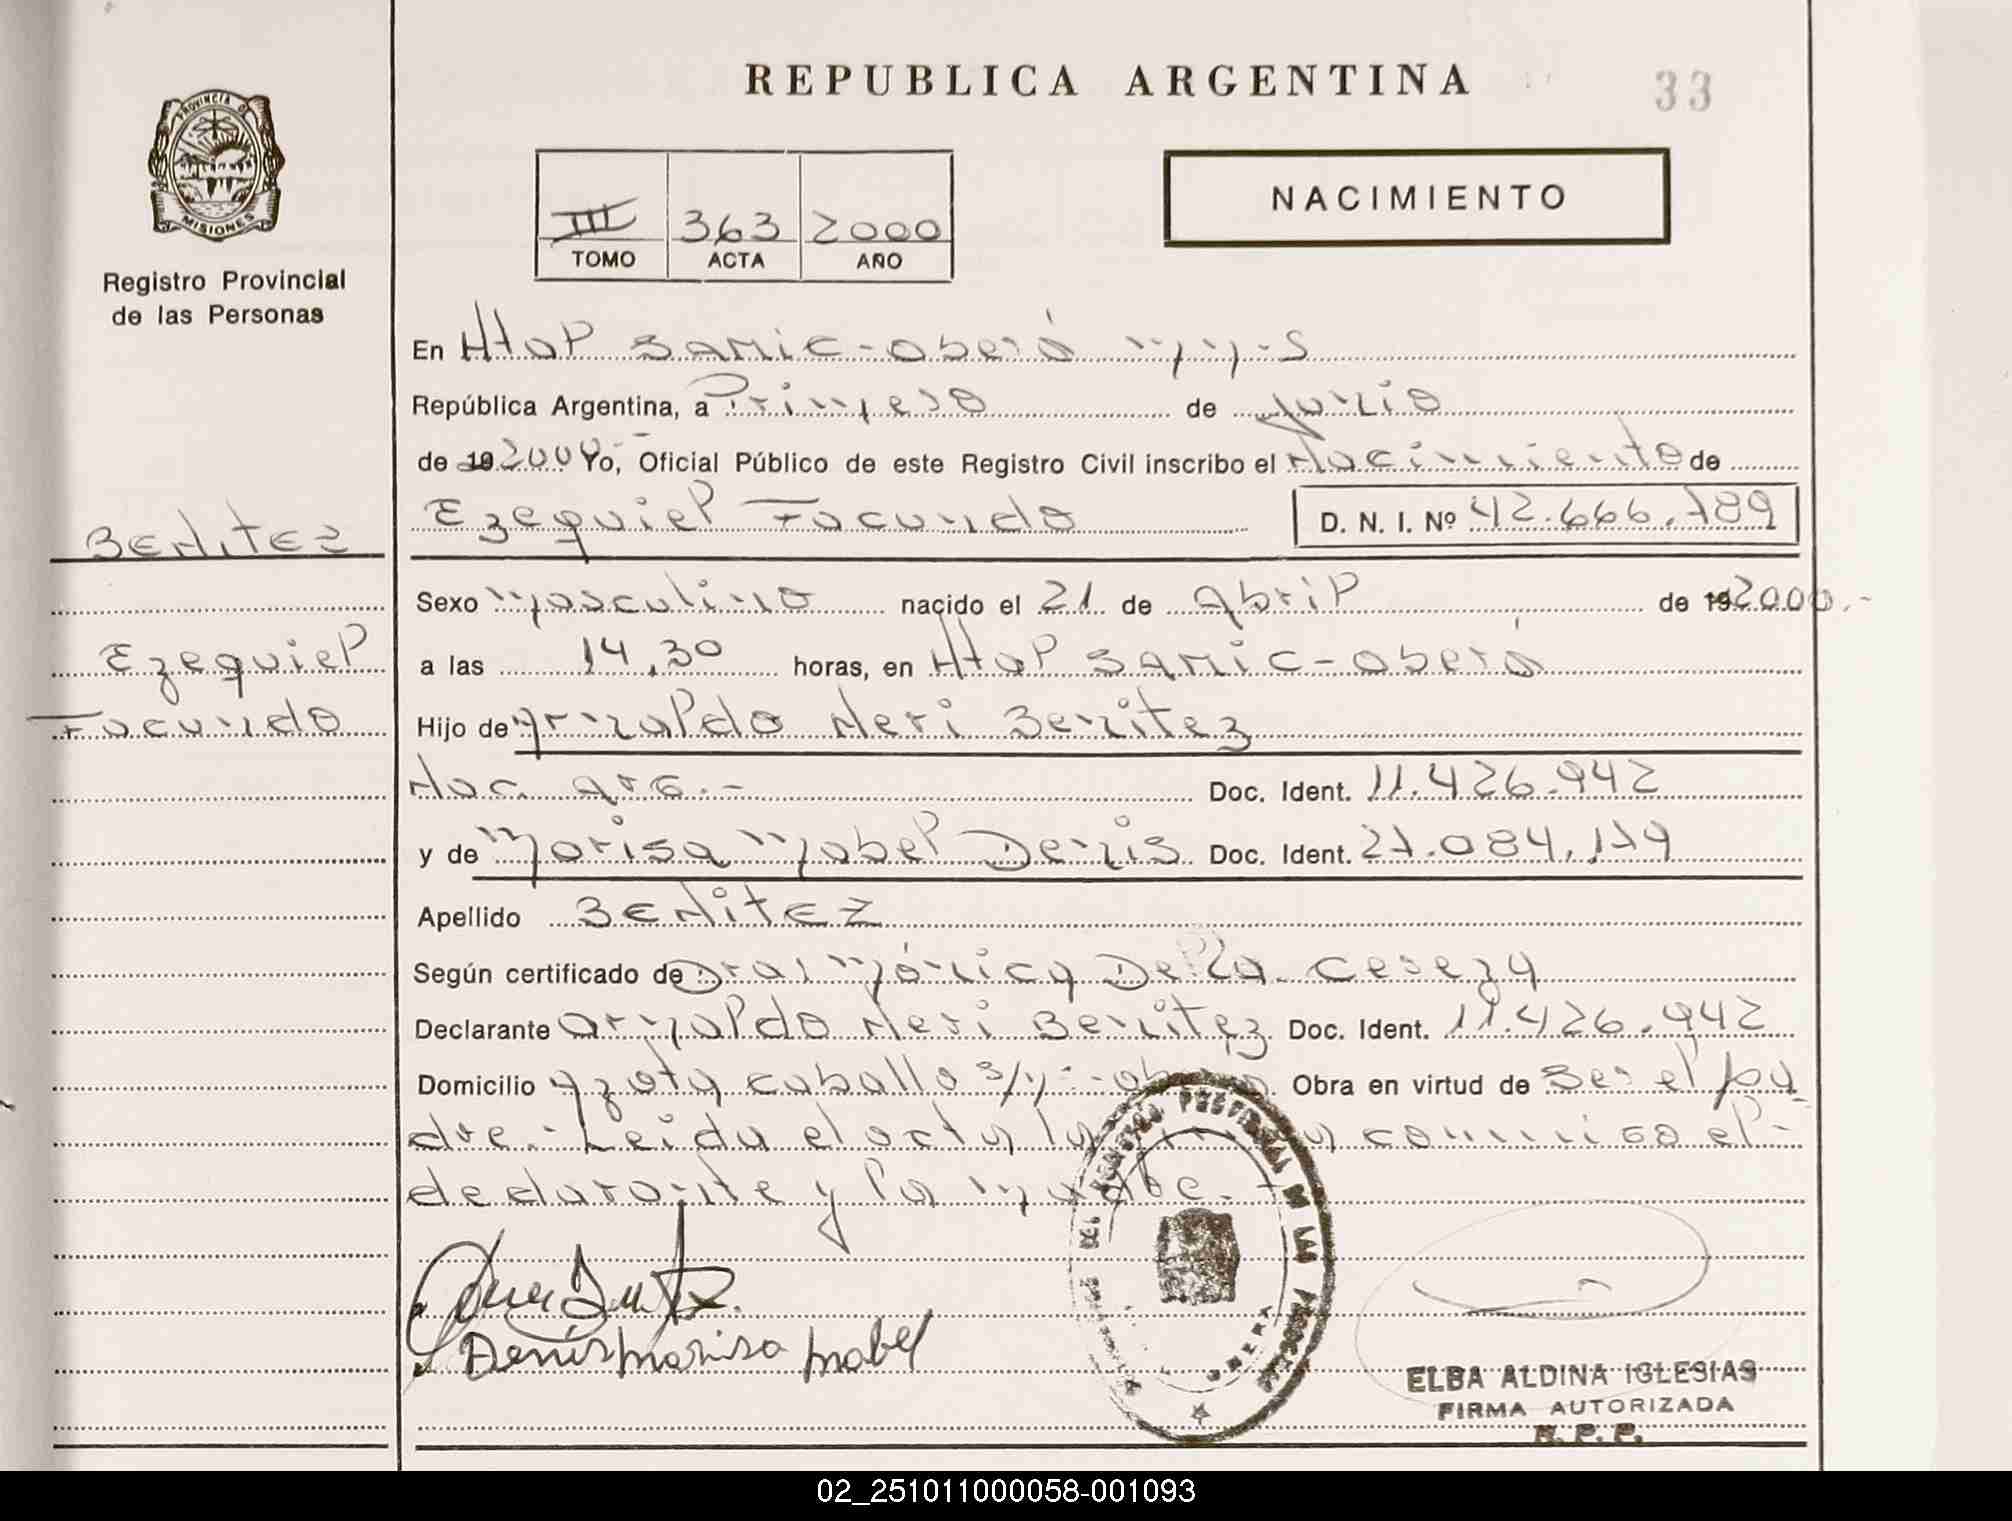 REPUBLICA ARGENTINA
33
PROVINCIA D
MISIONES
Registro Provincial
de las Personas
III 363 2000
TOMO ACTA AÑO
NACIMIENTO
En Htal SAMIC - oberá Mnes
República Argentina, a Primero de junio
de 19 2000 Yo, Oficial Público de este Registro Civil inscribo el Nacimiento de
BENITEZ
Ezequiel Facundo D. N. I. Nº 42.666.789
Sexo Masculino nacido el 21 de abril de 19 2000.-
Ezequiel
a las 14,30 horas, en Htal SAMIC - oberá
Facundo
Hijo de Arnaldo Neri Benitez
Nac. arg. - Doc. Ident. 11.426.942
y de Marisa Mabel Denis Doc. Ident. 27.084.174
Apellido BENITEZ
Según certificado de Dra. Mónica Della Cereza
Declarante Arnaldo Neri Benitez Doc. Ident. 11.426.942
Domicilio Azota caballo s/n - Obra en virtud de ser el pa
dre.- Leida el acta la y conmigo el
declarante y la madre.
Denis Marisa Mabel
ELBA ALDINA IGLESIAS
FIRMA AUTORIZADA
R. P. P.
02_251011000058-001093